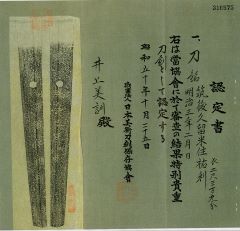 316575
認定書
一、刀 銘 筑後久留米住祐利
明治三年二月日
長二尺三寸九分
右は當協會に於て審査の結果特別貴重
刀剣として認定する
昭和五十年十月二十五日
財團法人日本美術刀剣保存協會
井上美訓殿